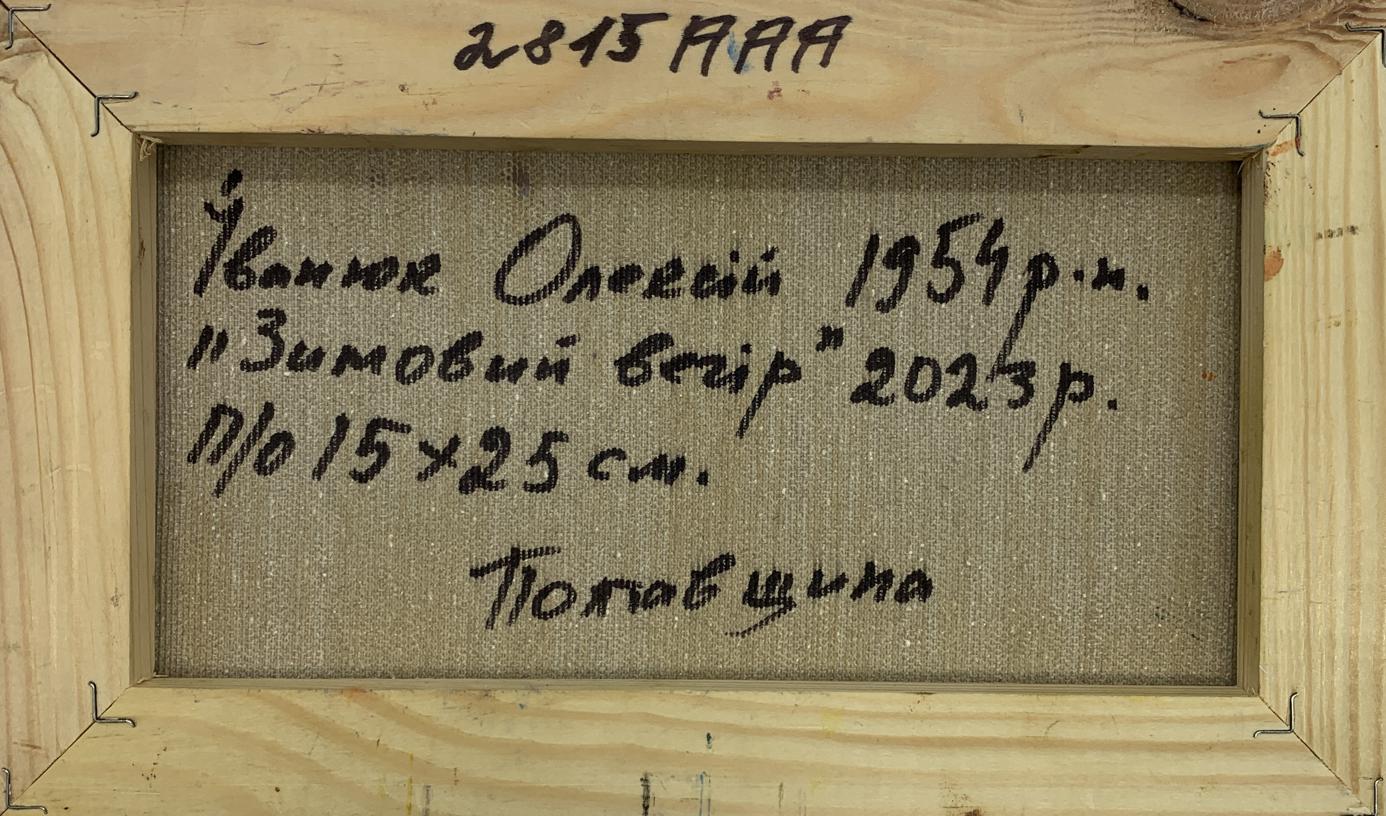 2815 ААА
Іванюк Олексій 1954 р.н.
"Зимовий вечір" 2023 р.
п/о 15×25 см.
Полтавщина